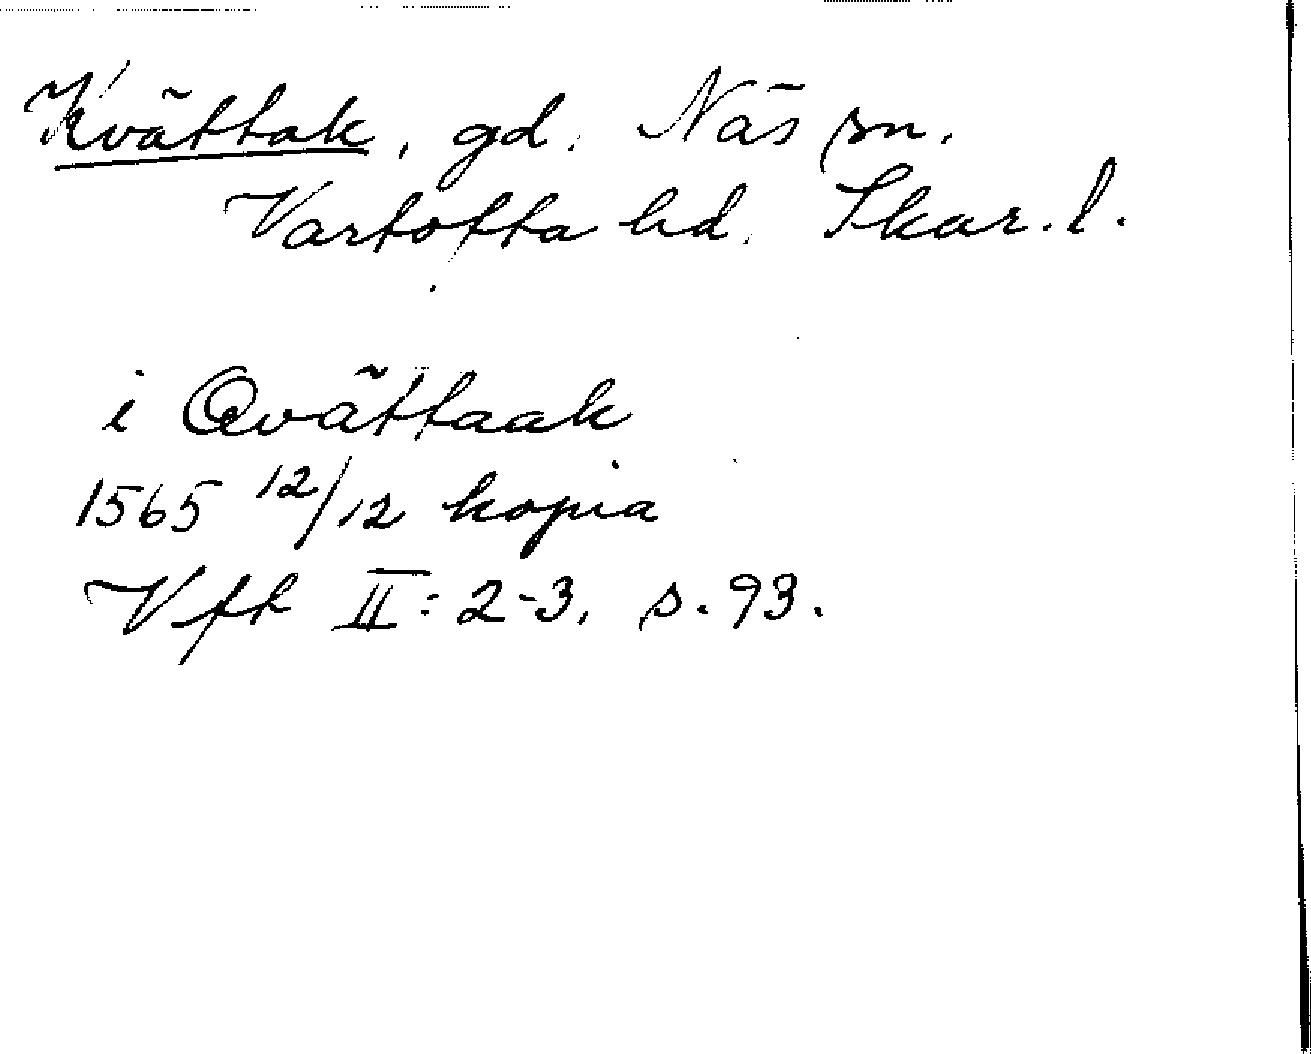 Kvättak, gd. Näs sn.
Vartofta hd. Skar. l.
i Qvättaak
1565 12/12 kopia
Vft II: 2-3, s. 93.